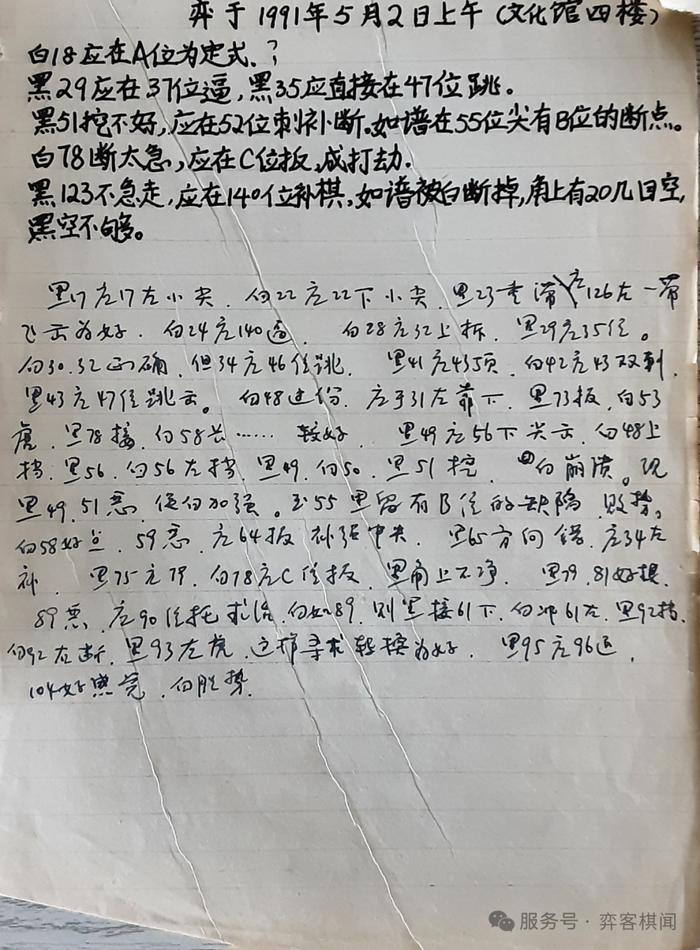 弈于1991年5月2日上午(文化馆四楼)
白18应在A位为定式.?
黑29应在37位逼,黑35应直接在47位跳。
黑51挖不好,应在52位刺补断.如谱在55位尖有B位的断点。
白78断太急,应在C位扳,成打劫.
黑123不急走,应在140位补棋,如谱被白断掉,角上有20几目空,
黑空不够。
黑17应17左小尖.白22应22下小尖.黑23重滞应126左一带
飞出为好.白24应140逼.白28应32上拆.黑29应35位。
白30.32正确,但34应46位跳.黑41应43顶.白42应43双刺.
黑43应47位跳出。白48过份.应于31左靠下.黑73扳,白53
虎.黑78接.白58长……较好.黑49应56下尖出.白48上
挡.黑56.白56左挡.黑49.白50.黑51挖.白崩溃。现
黑49.51恶.使白加强。至55黑留有B位的缺陷.败势。
白58好点.59恶.应64扳补强中央.黑65方向错.应34左
补.黑75应78.白78应C位扳.黑角上不净.黑79.81好棋.
89恶.应90位托求活.白如89.则黑接61下.白冲61左.黑92挡.
白92右断.黑93左虎.这样寻求转换为好.黑95应96逼.
104好点.白胜势.
服务号·弈客棋闻